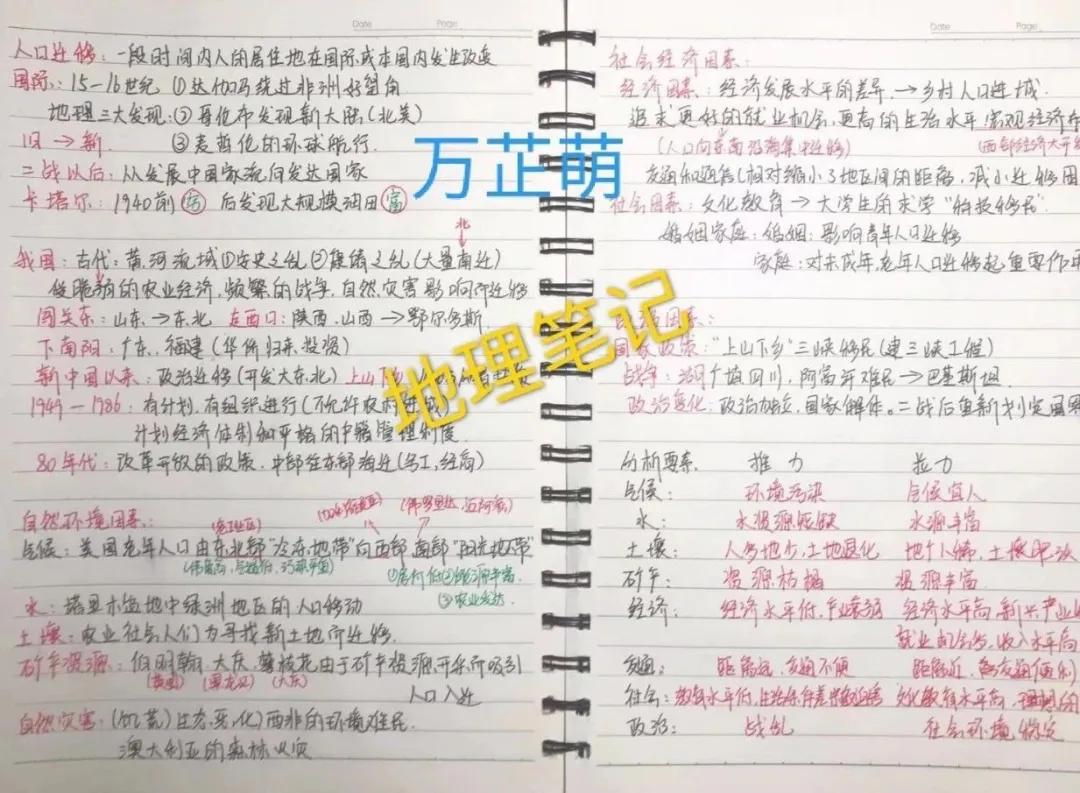 Date Page
人口迁移：一段时间内人的居住地在国际或本国内发生改变
国际：15—16世纪 ①达伽马绕过非洲好望角
地理三大发现：② 哥伦布发现新大陆(北美)
旧→新 ③麦哲伦的环球航行.
二战以后：从发展中国家流向发达国家
卡塔尔：1940前 后发现大规模油田 富
北
我国：古代：黄河流域①安史之乱②靖康之乱(大量南迁)
脆弱的农业经济,频繁的战争,自然灾害影响而迁移
闯关东：山东→东北 走西口：陕西、山西→鄂尔多斯
下南阳：广东、福建(华侨归来,投资)
新中国以来：政治迁移(开发大东北) 上山下乡
1949—1986：有计划,有组织进行(不允许农村进城)
计划经济体制和严格的户籍管理制度
80年代：改革开放的政策,中部往东部沿迁(务工,经商)
自然环境因素：
(老工业区) (佛罗里达,
气候：美国老年人口由东北部"冷冻地带"向西部南部"阳光地带"
③农业发达
水：塔里木盆地中绿洲地区的人口移动
土壤：农业社会人们为寻找新土地而迁移.
矿产资源：伯明翰、大庆、攀枝花由于矿产资源开采而吸引
(英国) (黑龙江)
人口入迁
自然灾害：生态恶化)西非的环境难民
澳大利亚的森林火灾
Date Page
社会经济因素：
经济因素：经济发展水平的差异→乡村人口进城.
追求更好的就业机会,更高的生活水平 宏观经济布
(人口向东南沿海集中迁移) (西部经济大开
交通和通信(相对缩小了地区间的距离,减小迁移困
社会因素：文化教育→大学生的求学 "科技移民"
婚姻家庭：婚姻：影响青年人口迁移
家庭：对未成年,老年人口迁移起重要作用
因素：
国家政策："上山下乡"三峡移民(建三峡工程)
战争：湖广填四川,阿富汗难民→巴基斯坦.
政治变化：政治独立,国家解体。二战后重新划定国界
分析要素 推力 拉力
气候： 环境污染 气候宜人
水： 水资源短缺 水源丰富
土壤： 人多地少,土地退化 地广人稀,土壤肥沃
矿产： 资源枯竭 资源丰富
经济： 经济水平低,产业衰弱 经济水平高,新兴产业
就业机会多,收入水平高
交通： 距离远,交通不便 距离近,交通便利
社会：教育水平低,生活条件差 文化教育水平高,理想的
政治： 战乱 社会环境稳定
万芷萌
地理笔记